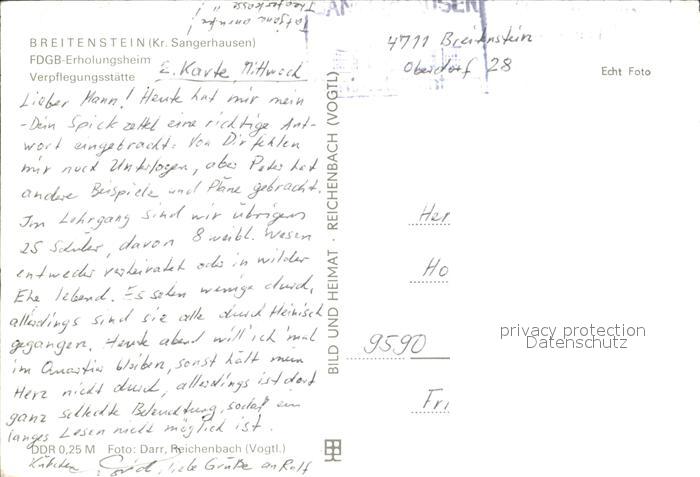 Tatjana anrufen!
Theaterkasse"!
BREITENSTEIN (Kr. Sangerhausen)
FDGB-Erholungsheim
Verpflegungsstätte
2. Karte, Mittwoch
Lieber Mann! Heute hat mir mein
-Dein Spickzettel eine richtige Ant-
wort eingebracht. Von Dir fehlen
mir noch Unterlagen, aber Peter hat
andere Beispiele und Pläne gebracht.
Im Lehrgang sind wir übrigens
25 Schüler, davon 8 weibl. Wesen
entweder verheiratet oder in wilder
Ehe lebend. Es sehen wenige durch,
allerdings sind sie alle durch
gegangen. Heute abend will ich 'mal
im Quartier bleiben, sonst hält mein
Herz nicht durch, allerdings ist dort
ganz schlechte Beleuchtung, sodaß ein
langes Lesen nicht möglich ist.
DDR 0,25 M Foto: Darr, Reichenbach (Vogtl.)
liebe Grüße an Rolf
BILD UND HEIMAT · REICHENBACH (VOGTL)
4711 Breitenstein
Oberdorf 28
Echt Foto
Her
Ho
9590
Fri
privacy protection
Datenschutz